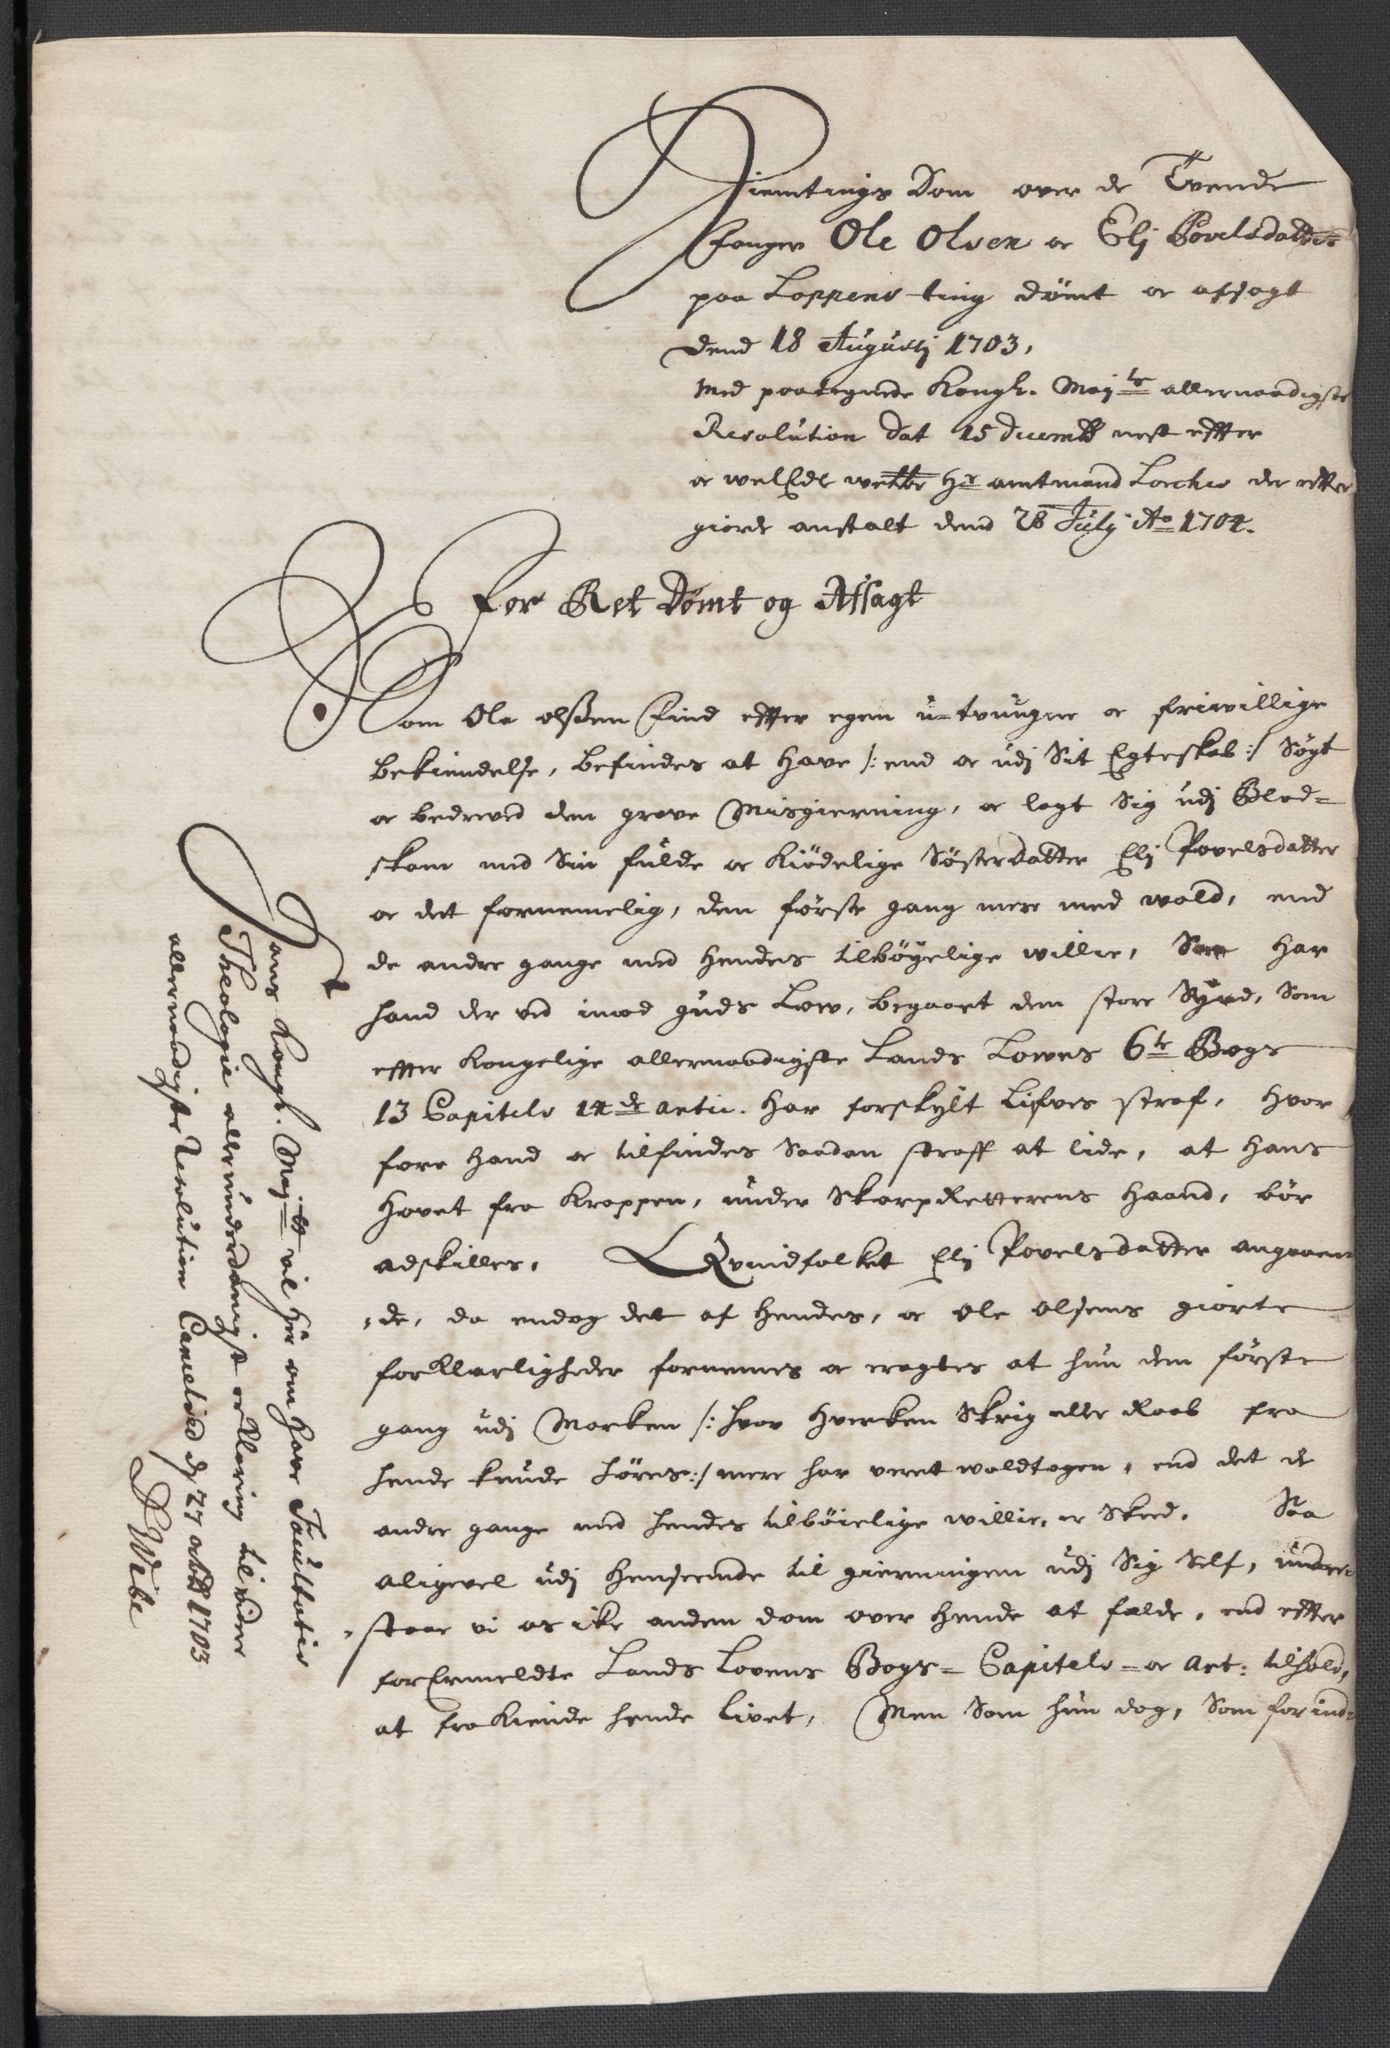 Hiemtings Dom over de Tvende
Fanger Ole Olsen oc Elj Povelsdatter
paa Loppens-ting dömt oc afsagt
dend 18 Augustj 1703,
Med paategnede Kongl. Maj ts allernaadigste
Resolution dat 15 decemb nest effter
oc welEdle Hr amtmand Lorchs der effter
giorde anstalt dend 28 Julij Ao 1704.
For Ret Dömt og Afsagt
Som Ole olßen Find effter egen u-tvungne oc friwillige
bekiendelse, befindes at have /: end oc udj Sit Egteskab :/ Søgt
oc bedrevet den grove Misgierning, oc lagt Sig udj Blod=
skam med Sin fulde oc Kiödelige Søsterdatter Elj Povelsdatter
oc det fornemelig, den første gang mere med wold, end
de andre gange med hendes tilböyelige willie, Saa har
hand der ved imod guds Low, begaaet den store Synd, Som
effter Kongelige allernaadigste Lands Lowes 6te Bogs
13 Capitels 14de artic. har forskylt Lifves straf, hvor
fore hand oc tilfindes Saadan straff at lide, at hans
hovet fra Kroppen, under SkarpRetterens haand, bör
adskilles. Qvindfolket Elj Povelsdatter angaaen
de, da endog det af hendes, oc ole olsens giorte
forKlarligheder fornemmes oc eragtes at hun den første
gang udj Marken /: hvor hverken Skrig eller Raab fra
hende kunde höres :/ mere har veret woldtagen, end det de
andre gange med hendes tilböielige willie, er Skeed. Saa
aligevel udj henseende til gierningen udj Sig Self, under
staar vi os icke anden dom over hende at fælde, end effter
forErmeldte Lands Lovens Bogs- Capitels- oc art: tilhold,
at fraKiende hende livet, Men Som hun dog, Som for ind
Hans Kongl. Maj ts vil her om have Facultatis
Theologiæ allerunderdanigst erKlæring til videre
allernaadigste Resolution Cancelied d 27 octb 1703
D Wibe